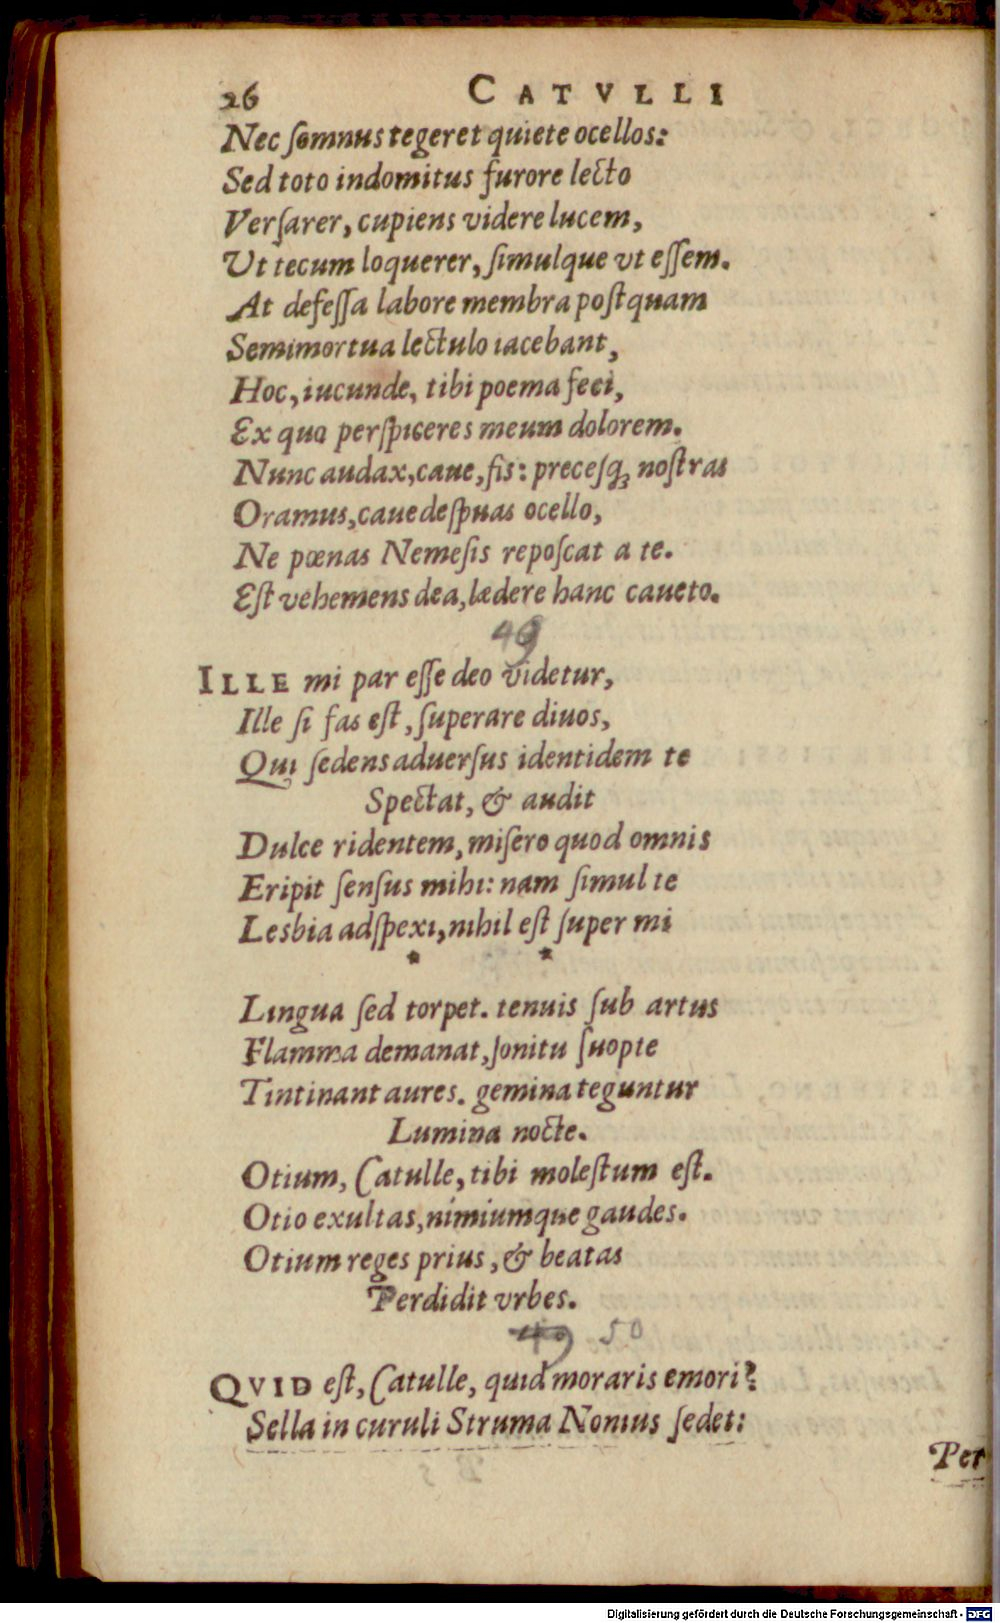 26 CATVLLI
Nec ſomnus tegeret quiete ocellos:
Sed toto indomitus furore lecto
Verſarer, cupiens videre lucem,
Ut tecum loquerer, ſimulque vt eſſem.
At defeſſa labore membra poſtquam
Semimortua lectulo iacebant,
Hoc, iucunde, tibi poema feci,
Ex quo perſpiceres meum dolorem.
Nunc audax, caue, ſis: preceſq; noſtras
Oramus, caue deſpuas ocello,
Ne pœnas Nemeſis repoſcat a te.
Eſt vehemens dea, lædere hanc caueto.
49
ILLE mi par eſſe deo videtur,
Ille ſi fas eſt, ſuperare diuos,
Qui ſedens aduerſus identidem te
Spectat, & audit
Dulce ridentem, miſero quod omnis
Eripit ſenſus mihi: nam ſimul te
Lesbia adſpexi, nihil eſt ſuper mi
* *
Lingua ſed torpet. tenuis ſub artus
Flamma demanat, ſonitu ſuopte
Tintinant aures. gemina teguntur
Lumina nocte.
Otium, Catulle, tibi moleſtum eſt.
Otio exultas, nimiumque gaudes.
Otium reges prius, & beatas
Perdidit vrbes.
49 50
QVID eſt, Catulle, quid moraris emori?
Sella in curuli Struma Nonius ſedet:
Per
Digitalisierung gefördert durch die Deutsche Forschungsgemeinschaft - DFG